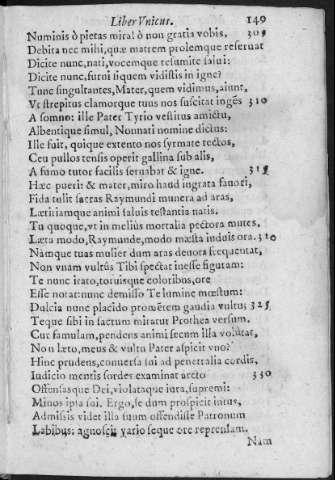 Liber Vnicus. 149
Numinis ò pietas mira! ò non gratia vobis, 305
Debita nec mihi, quæ matrem prolemque reseruat
Dicite nunc, nati, vocemque resumite salui:
Dicite nunc, furni siquem vidistis in igne?
Tunc singultantes, Mater, quem vidimus, aiunt,
Vt strepitus clamorque tuus nos suscitat ingēs 310
A somno: ille Pater Tyrio vestitus amictu,
Albentique simul, Nonnati nomine dictus:
Ille fuit, quique extento nos syrmate rectos,
Ceu pullos tensis operit gallina sub alis,
A fumo tutor facilis seruabat & igne. 315
Hæc pueri: & mater, miro haud ingrata fauori,
Fida tulit sacras Raymundi munera ad aras,
Lætitiamque animi saluis testantia natis.
Tu quoque, vt in melius mortalia pectora mutes,
Læta modo, Raymunde, modo mæsta induis ora. 320
Namque tuas mulier dum aras deuota frequentat,
Non vnam vultûs Tibi spectat inesse figuram:
Te nunc irato, toruisque coloribus, ore
Esse notat: nunc demisso Te lumine mœstum:
Dulcia nunc placido promētem gaudia vultu: 325
Teque sibi in sactum miratur Prothea versum.
Cur famulam, pendens animi secum illa volutat,
Non læto, meus & vultu Pater aspicit vno?
Hinc prudens, conuersa sui ad penetralia cordis,
Iudicio mentis sordes examinat arcto 330
Offensasque Dei, violataque iura, supremi:
Minos ipsa sui. Ergo, se dum prospicit intus,
Admissis videt illa suum offendisse Patronum
Labibus: agnoscit vario seque ore reprensam.
Nam